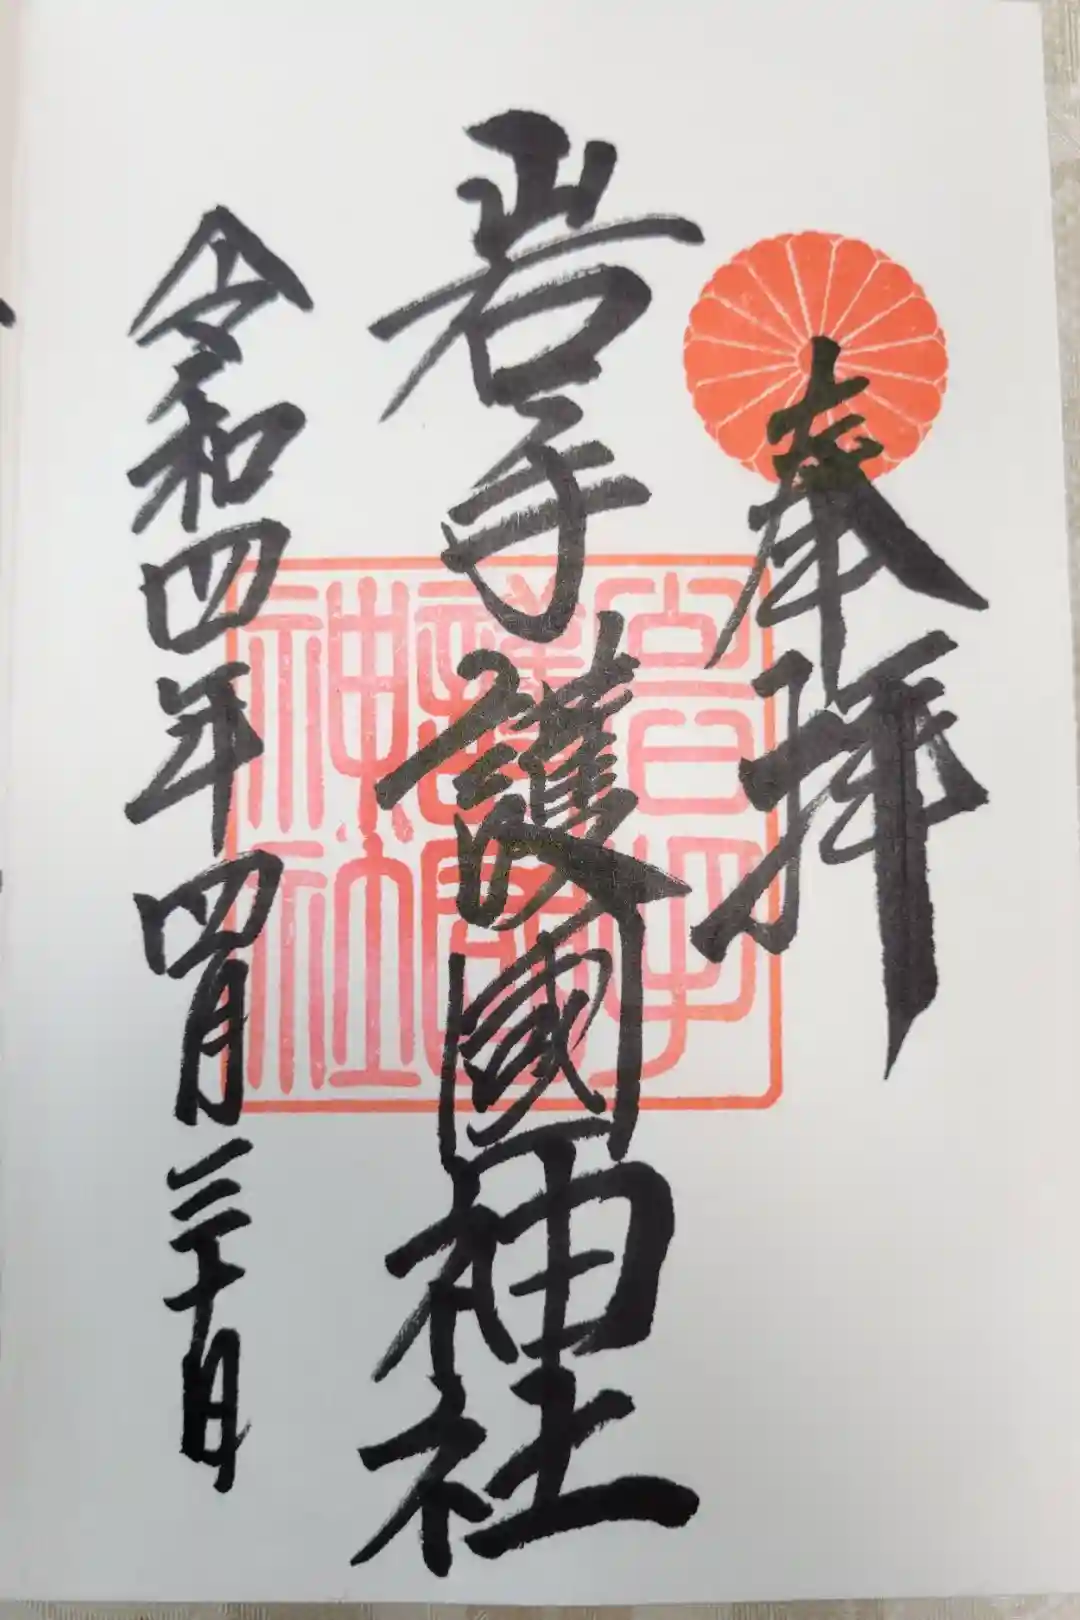 奉拝
岩手護國神社
令和四年四月三十日
岩手護國神社